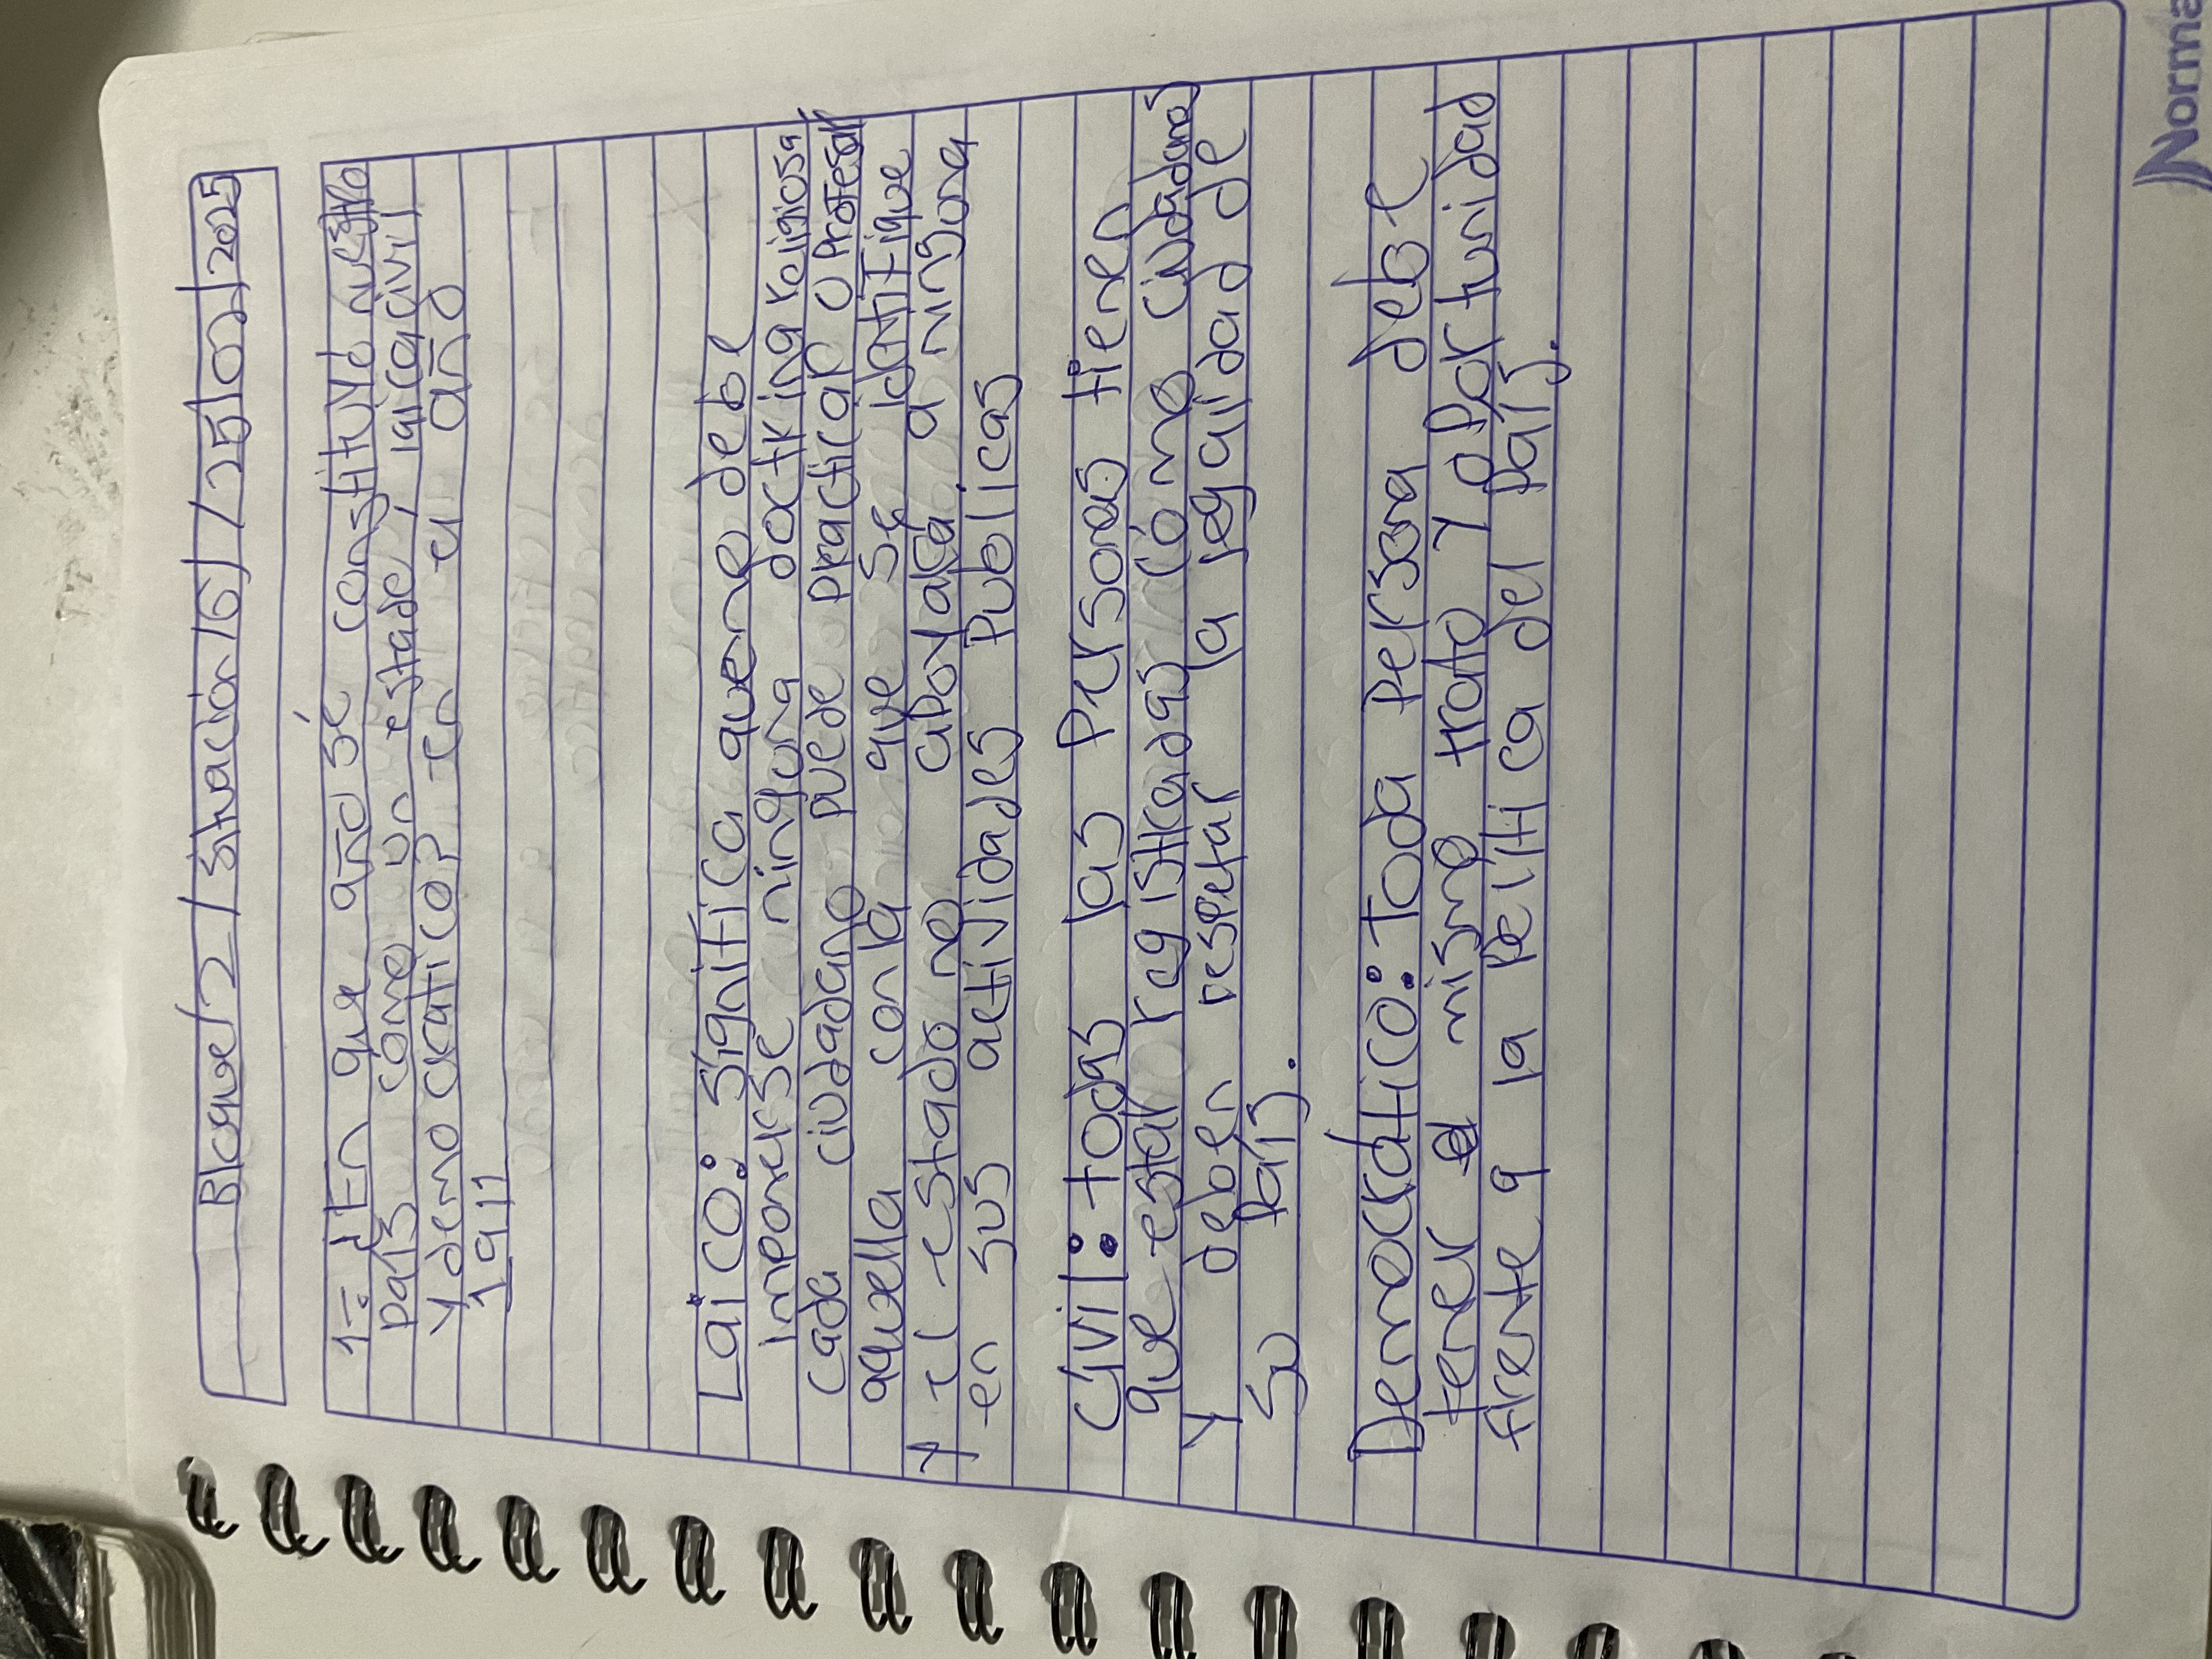 Bloque/2/situación/6/ /25/02/2025
1-: ¿En que año sé constituye nuestro
país como un estado, laica civil
y demo cratico? En el año
1911
Laico: significa que no debe
imponerse ninguna doctrina religiosa
cada ciudadano puede practicar o profesar
aquella con la que se identifique
y el estado no apoyara a ninguna
en sus actividades publicas
Civil: todas las personas tienen
que estar registradas cómo ciudadanos
y deben respetar la legalidad de
su país.
Democratico: Toda persona debe
tener el mismo trato y oportunidad
frente a la política del país.
Norma